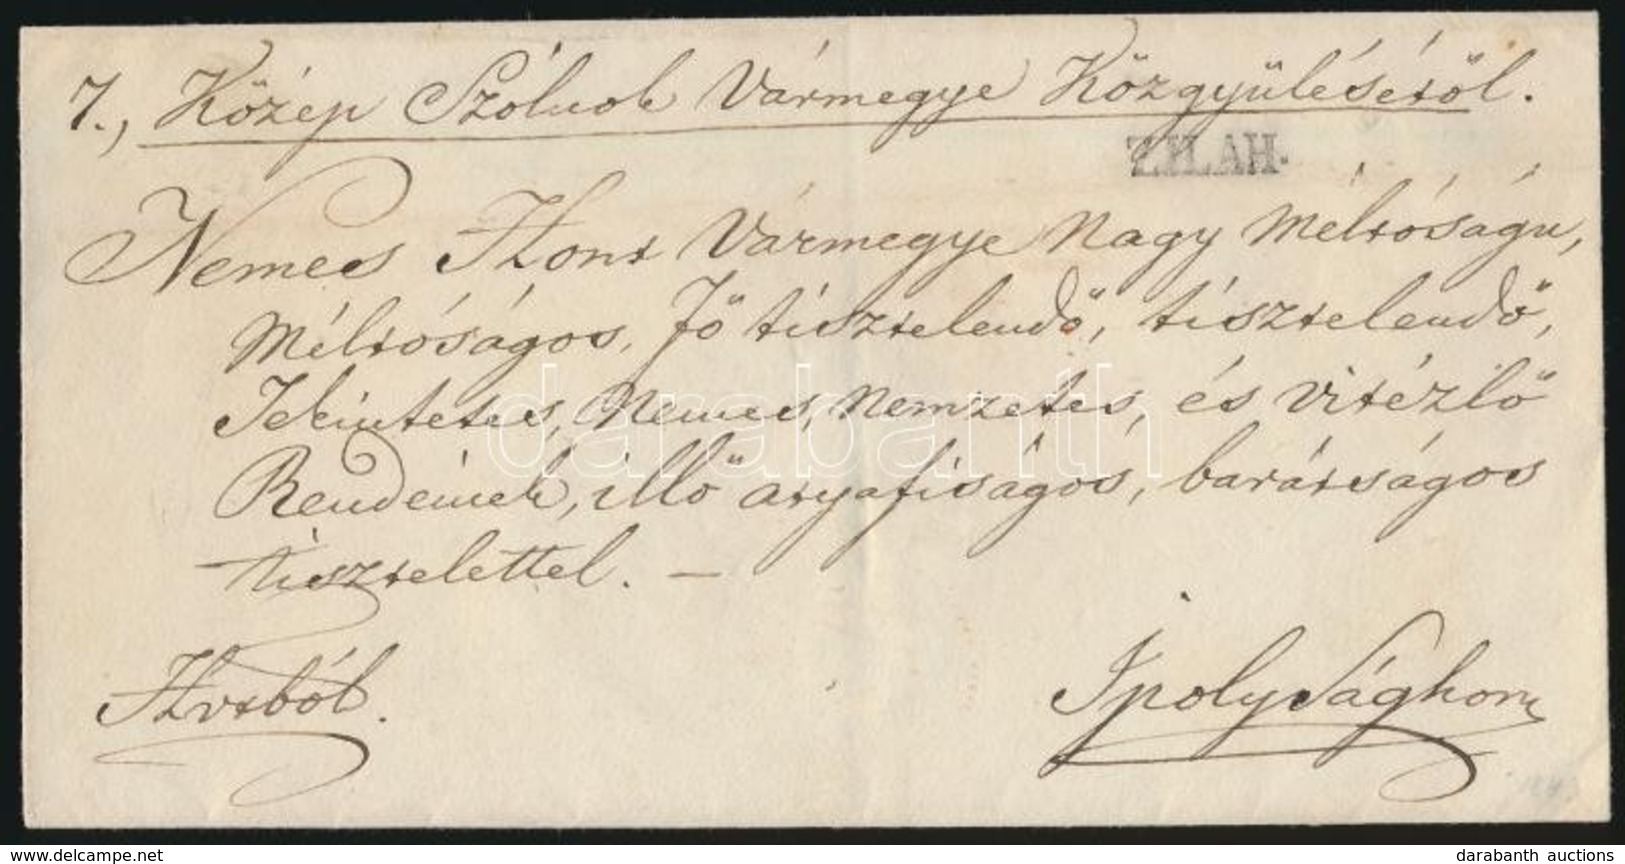 7., Közép Szólnok Vármegye Közgyüléséről.
ZILAH.
Nemes Hont Vármegye Nagy Méltóságu,
Méltóságos, Fő tisztelendő, tisztelendő,
Tekintetes, Nemes, Nemzetes, és vitézlő
Rendeinek, illő atyafiságos, barátságos
tisztelettel. —
Ipoly Sághon
darabanth
darabanth auctions